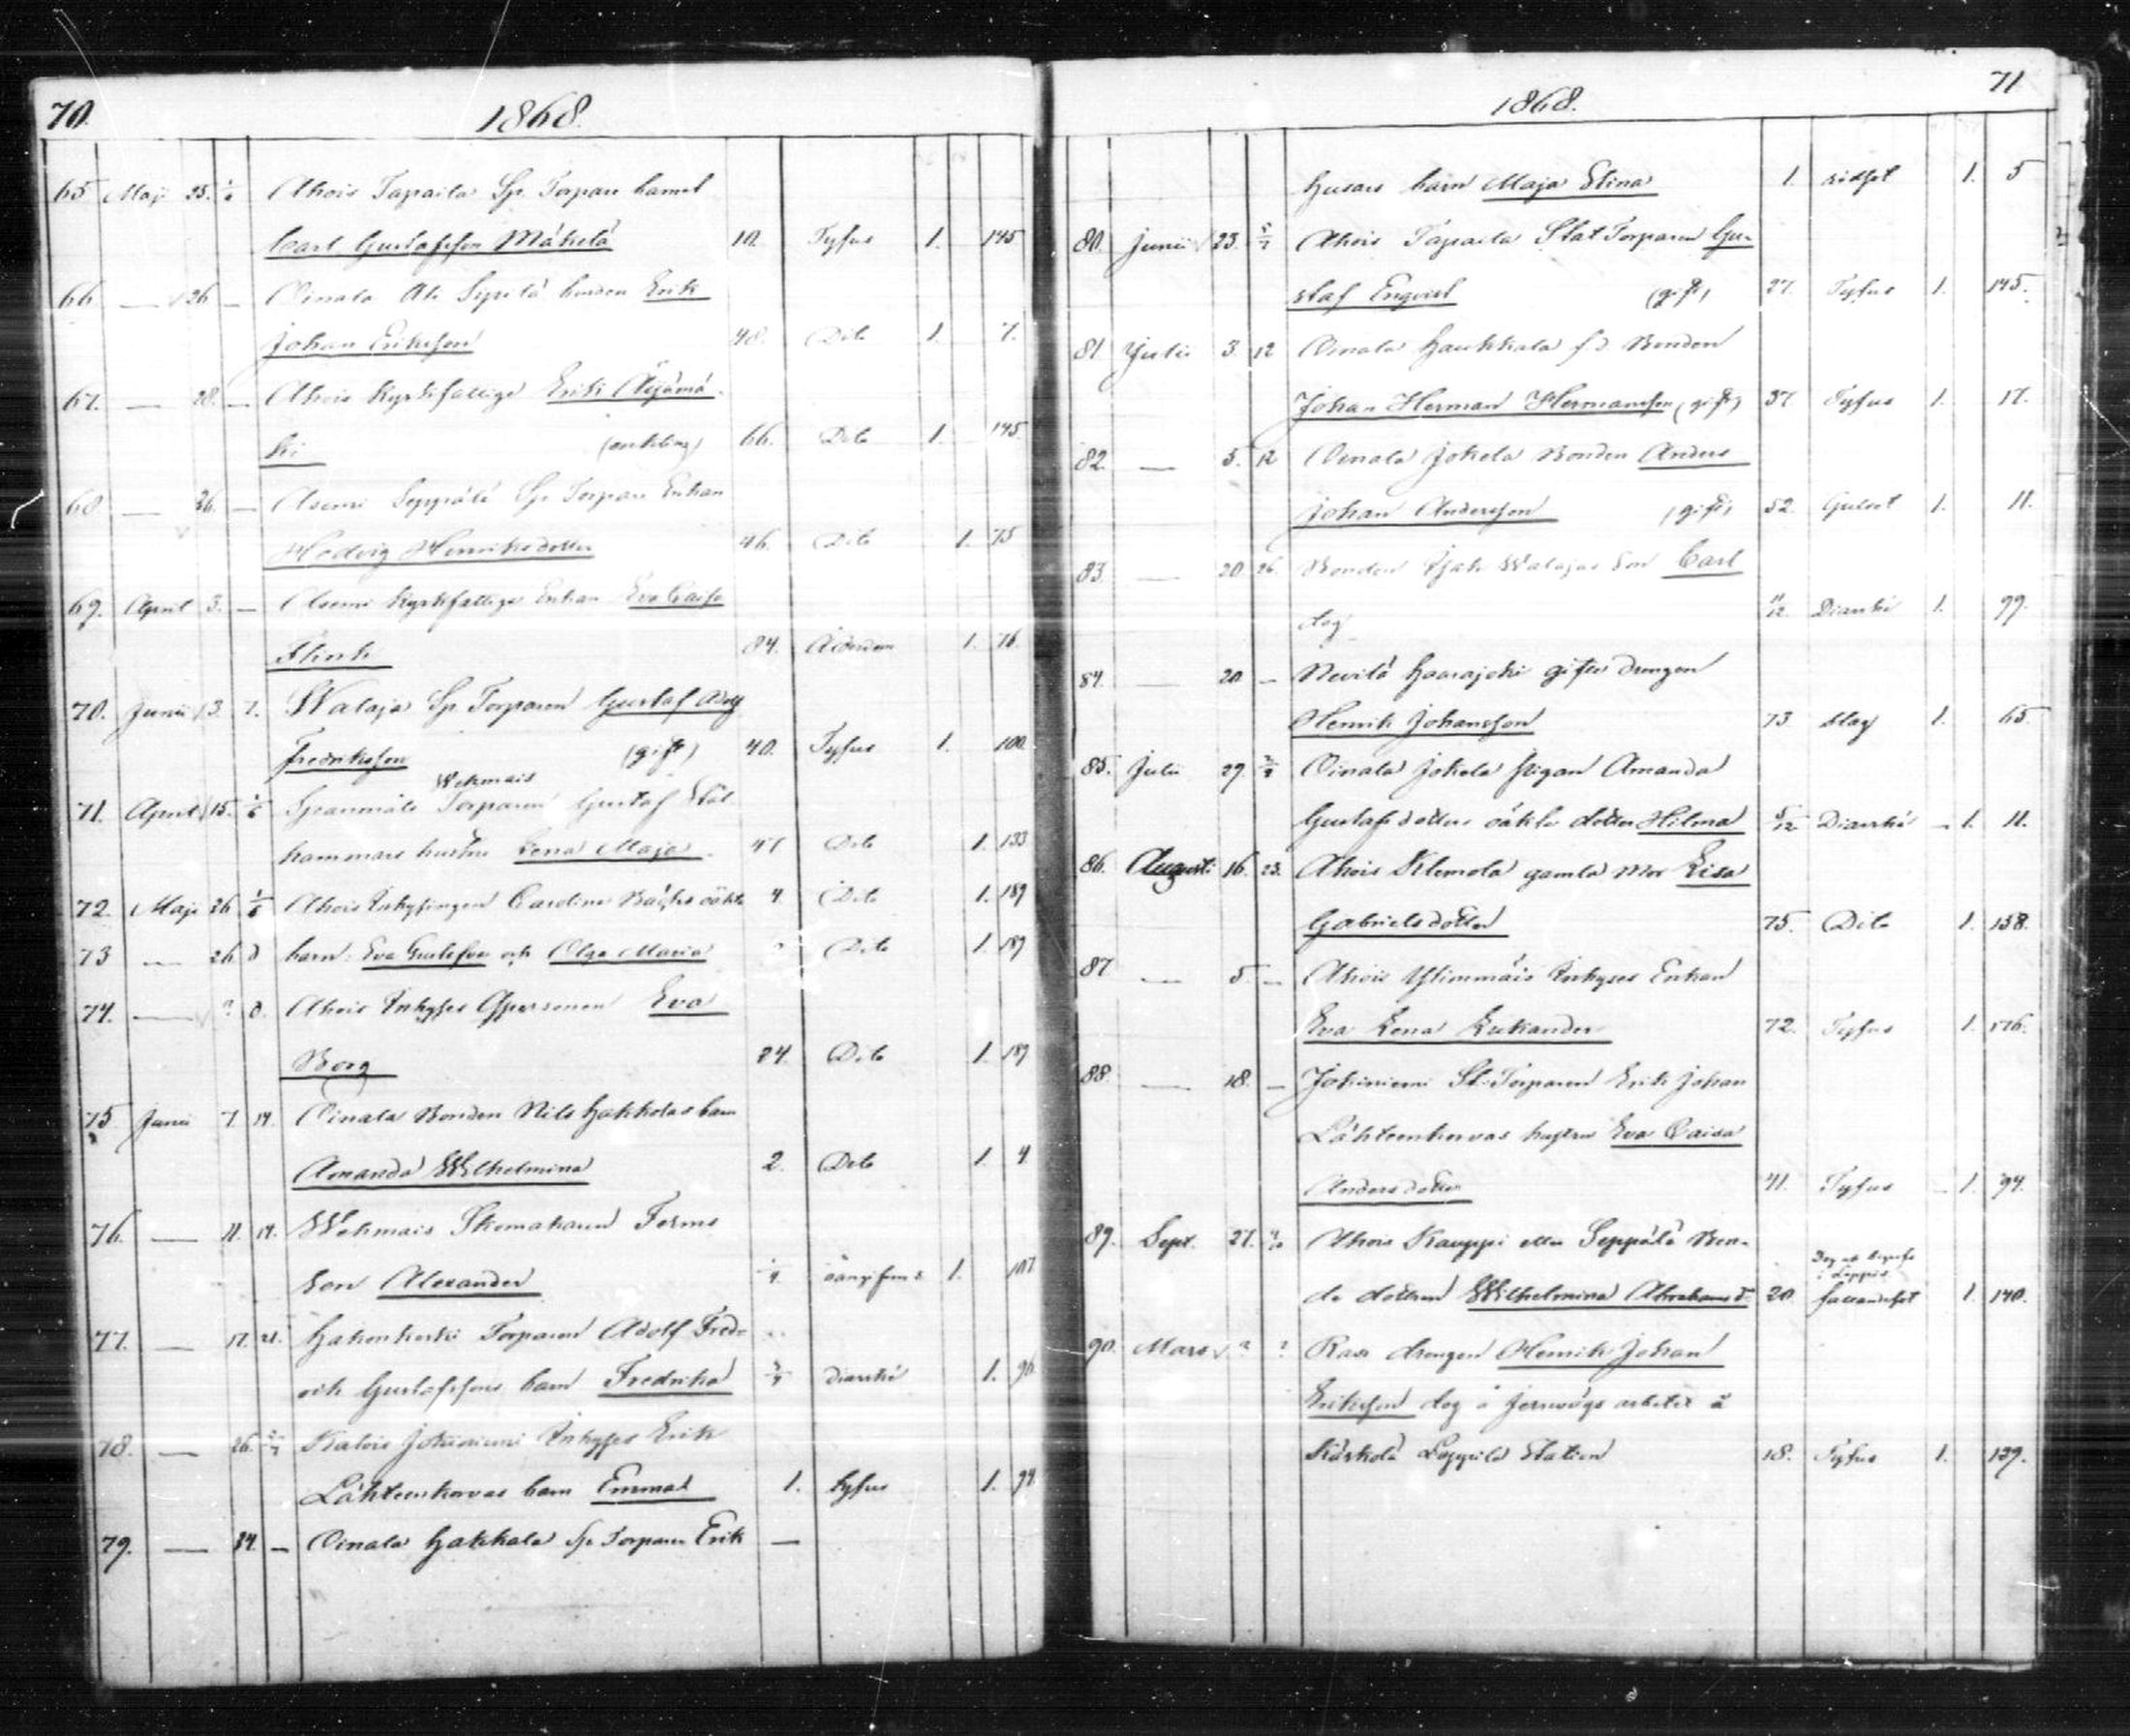 70.
1868.
65 Maji 25. Ahois Tapaila Sp. Torpare barnet
Carl Gustafsson Mäkelä 10. Tyfus 1. 145
66 — 26 — Oinala Ali Sipilä bonden Erik
Johan Eriksson 48. Dito 1. 7.
67. — 28. — Ahois Kyrkfattige Erik Äijämä
ki (enkling) 66. Dito 1. 145
68 — 26. — Seppälä Sp. Torpare Enkan
Hedvig Henriksdotter 46. Dito 1. 75
69. April 3. — Kyrkfattige Enkan Eva Caisa
Flink 84. Ålderdom 1. 76.
70. Junii 3. 7. Walaja Sp. Torparen Gustaf Adolf
Fredriksson (gift) 40. Tyfus 1. 100
Wehmais
71. April 15. Torparen Gustaf Stål
hammars hustru Lena Maja 47 Dito 1. 133
72. Maji 26 Ahois Inhysingen Carolina Bäcks oäkta 4. Dito 1. 189
73 — 26 barn: Eva Gustafva och Olga Maria ? Dito 1. 189
74. — ? Ahois Inhyses Qpersonen Eva
Borg 24. Dito 1. 189
75 Junii 7 14. Oinala Bonden Nils Hakkolas barn
Amanda Wilhelmina 2. Dito 1. 4
76. — 11. 14. Wehmais Skomakaren Ferms
Son Alexander 1. 107
77. — 17. 21. Torparen Adolf Fred-
rik Gustafssons barn Fredrika diarrhé 1. 96
78. — 26. Jokiniemi Inhyses Erik
Lähteenkorvas barn Emma 1. tyfus 1. 94
79. — 24. — Oinala Hakkala Sp. Torparen Erik —
71
1868.
Husars barn Maja Stina 1. 1. 5
80. Junii 23. Ahois Tapaila Stat Torparen Gu-
staf Enqvist (gift) 27. Tyfus 1. 145.
81 Julii 3. 12 Oinala Haukkala f.d. Bonden
Johan Herman Hermansson (gift) 37 Tyfus 1. 17.
82. — 5. 12 Oinala Jokela Bonden Anders
Johan Andersson (gift) 52. Gulsot 1. 11.
83. — 20 26. Bonden Walajas Son Carl
dog 11/12. Diarrhé 1. 99.
84. — 20 — Nevilä Haarajoki gifte drengen
Henrik Johansson 73 slag 1. 65.
85. Julii 29. Oinala Jokela pigan Amanda
Gustafsdotters oäkta dotter Hilma Diarrhé 1. 11.
86. Augusti 16. 23. Ahois Klemola gamla Mor Lisa
Gabrielsdotter 75. Dito 1. 138.
87 — 5 — Ahois Ylimmäis Inhyses Enkan
Eva Lena Lukander 72. Tyfus 1. 176.
88. — 18. — Jokiniemi St. Torparen Erik Johan
Lähteenkorvas hustru Eva Caisa
Andersdotter 41. Tyfus 1. 94.
89. Sept. 27. Ahois Kauppi eller Seppälä Bon-
de dottern Wilhelmina Abrahamsd 20. fallandesot 1. 140.
90. Mars ? ? Rasi drengen Henrik Johan
Eriksson dog å Jernvägs arbetet å
Kärkölä Lappila Station 18. Tyfus 1. 139.